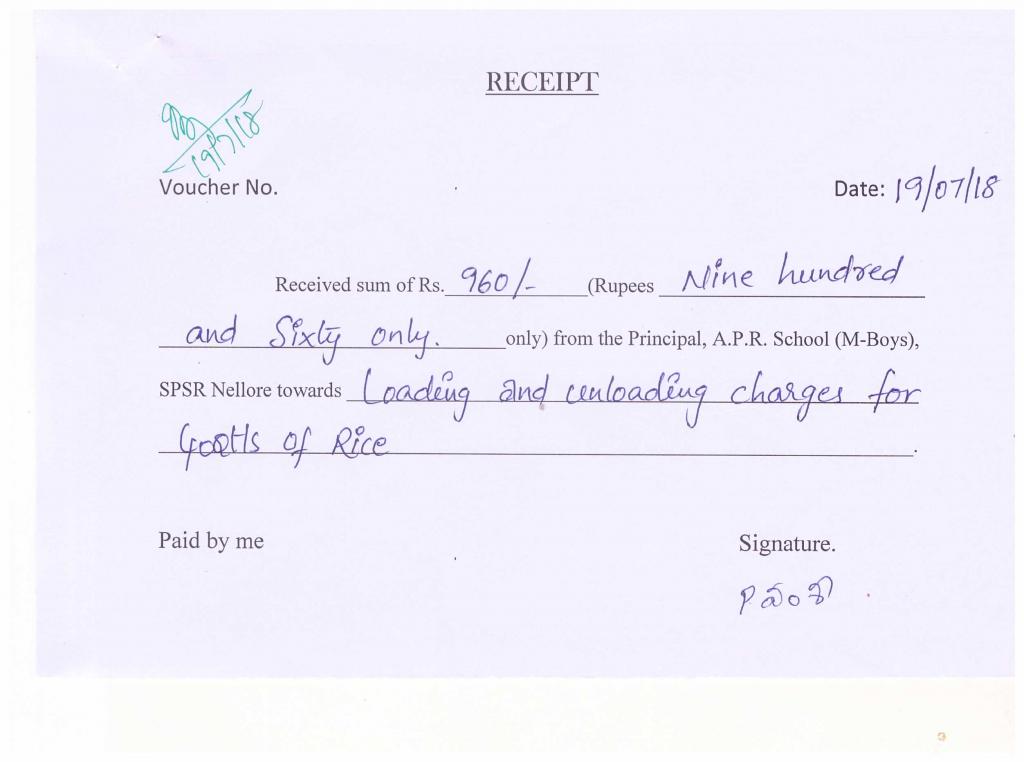 RECEIPT
19/7/18
Voucher No.
Date: 19/07/18
Received sum of Rs. 960/- (Rupees Nine hundred
and Sixty only. only) from the Principal, A.P.R. School (M-Boys),
SPSR Nellore towards Loading and unloading charges for
of Rice
Paid by me
Signature.
P వంశీ